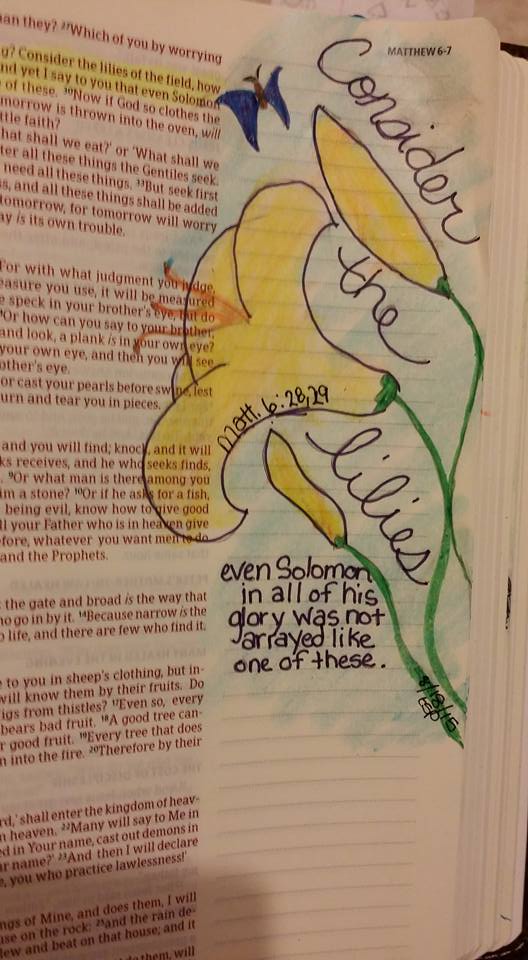 MATTHEW 6-7
an they? ²⁷Which of you by worrying
g? Consider the lilies of the field, how
nd yet I say to you that even Solomon
of these. ³⁰Now if God so clothes the
morrow is thrown into the oven, will
ttle faith?
hat shall we eat?' or 'What shall we
ter all these things the Gentiles seek.
need all these things. ³³But seek first
s, and all these things shall be added
omorrow, for tomorrow will worry
ay is its own trouble.
For with what judgment you judge,
easure you use, it will be measured
e speck in your brother's eye, but do
Or how can you say to your brother,
and look, a plank is in your own eye?
your own eye, and then you will see
other's eye.
or cast your pearls before swine, lest
urn and tear you in pieces.
and you will find; knock, and it will
ks receives, and he who seeks finds,
⁹Or what man is there among you
im a stone? ¹⁰Or if he asks for a fish,
being evil, know how to give good
ll your Father who is in heaven give
efore, whatever you want men to do
and the Prophets.
the gate and broad is the way that
ho go in by it. ¹⁴Because narrow is the
o life, and there are few who find it.
e to you in sheep's clothing, but in-
will know them by their fruits. Do
igs from thistles? ¹⁷Even so, every
bears bad fruit. ¹⁸A good tree can-
r good fruit. ¹⁹Every tree that does
n into the fire. ²⁰Therefore by their
rd,' shall enter the kingdom of heav-
n heaven. ²²Many will say to Me in
ed in Your name, cast out demons in
ur name?' ²³And then I will declare
e, you who practice lawlessness!'
ngs of Mine, and does them, I will
use on the rock: ²⁵and the rain de-
lew and beat on that house; and it
do them, will
Consider
the
lilies
Matt. 6:28,29
even Solomon
in all of his
glory was not
arrayed like
one of these.
8/18/15